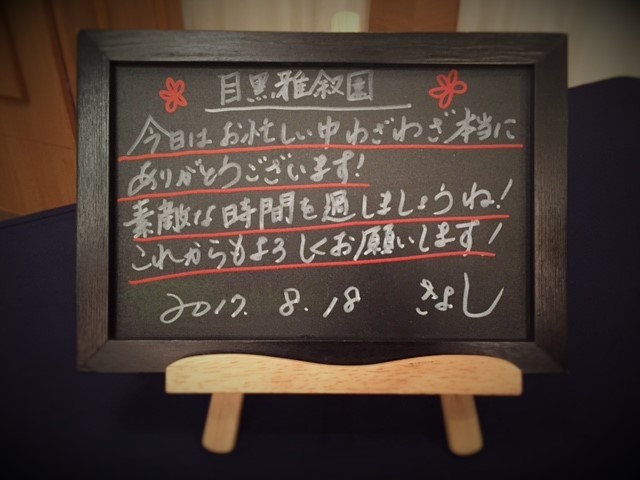 目黒雅叙園
今日はお忙しい中わざわざ本当に
ありがとうございます!
素敵な時間を過しましょうね!
これからもよろしくお願いします!
2017. 8. 18 きよし